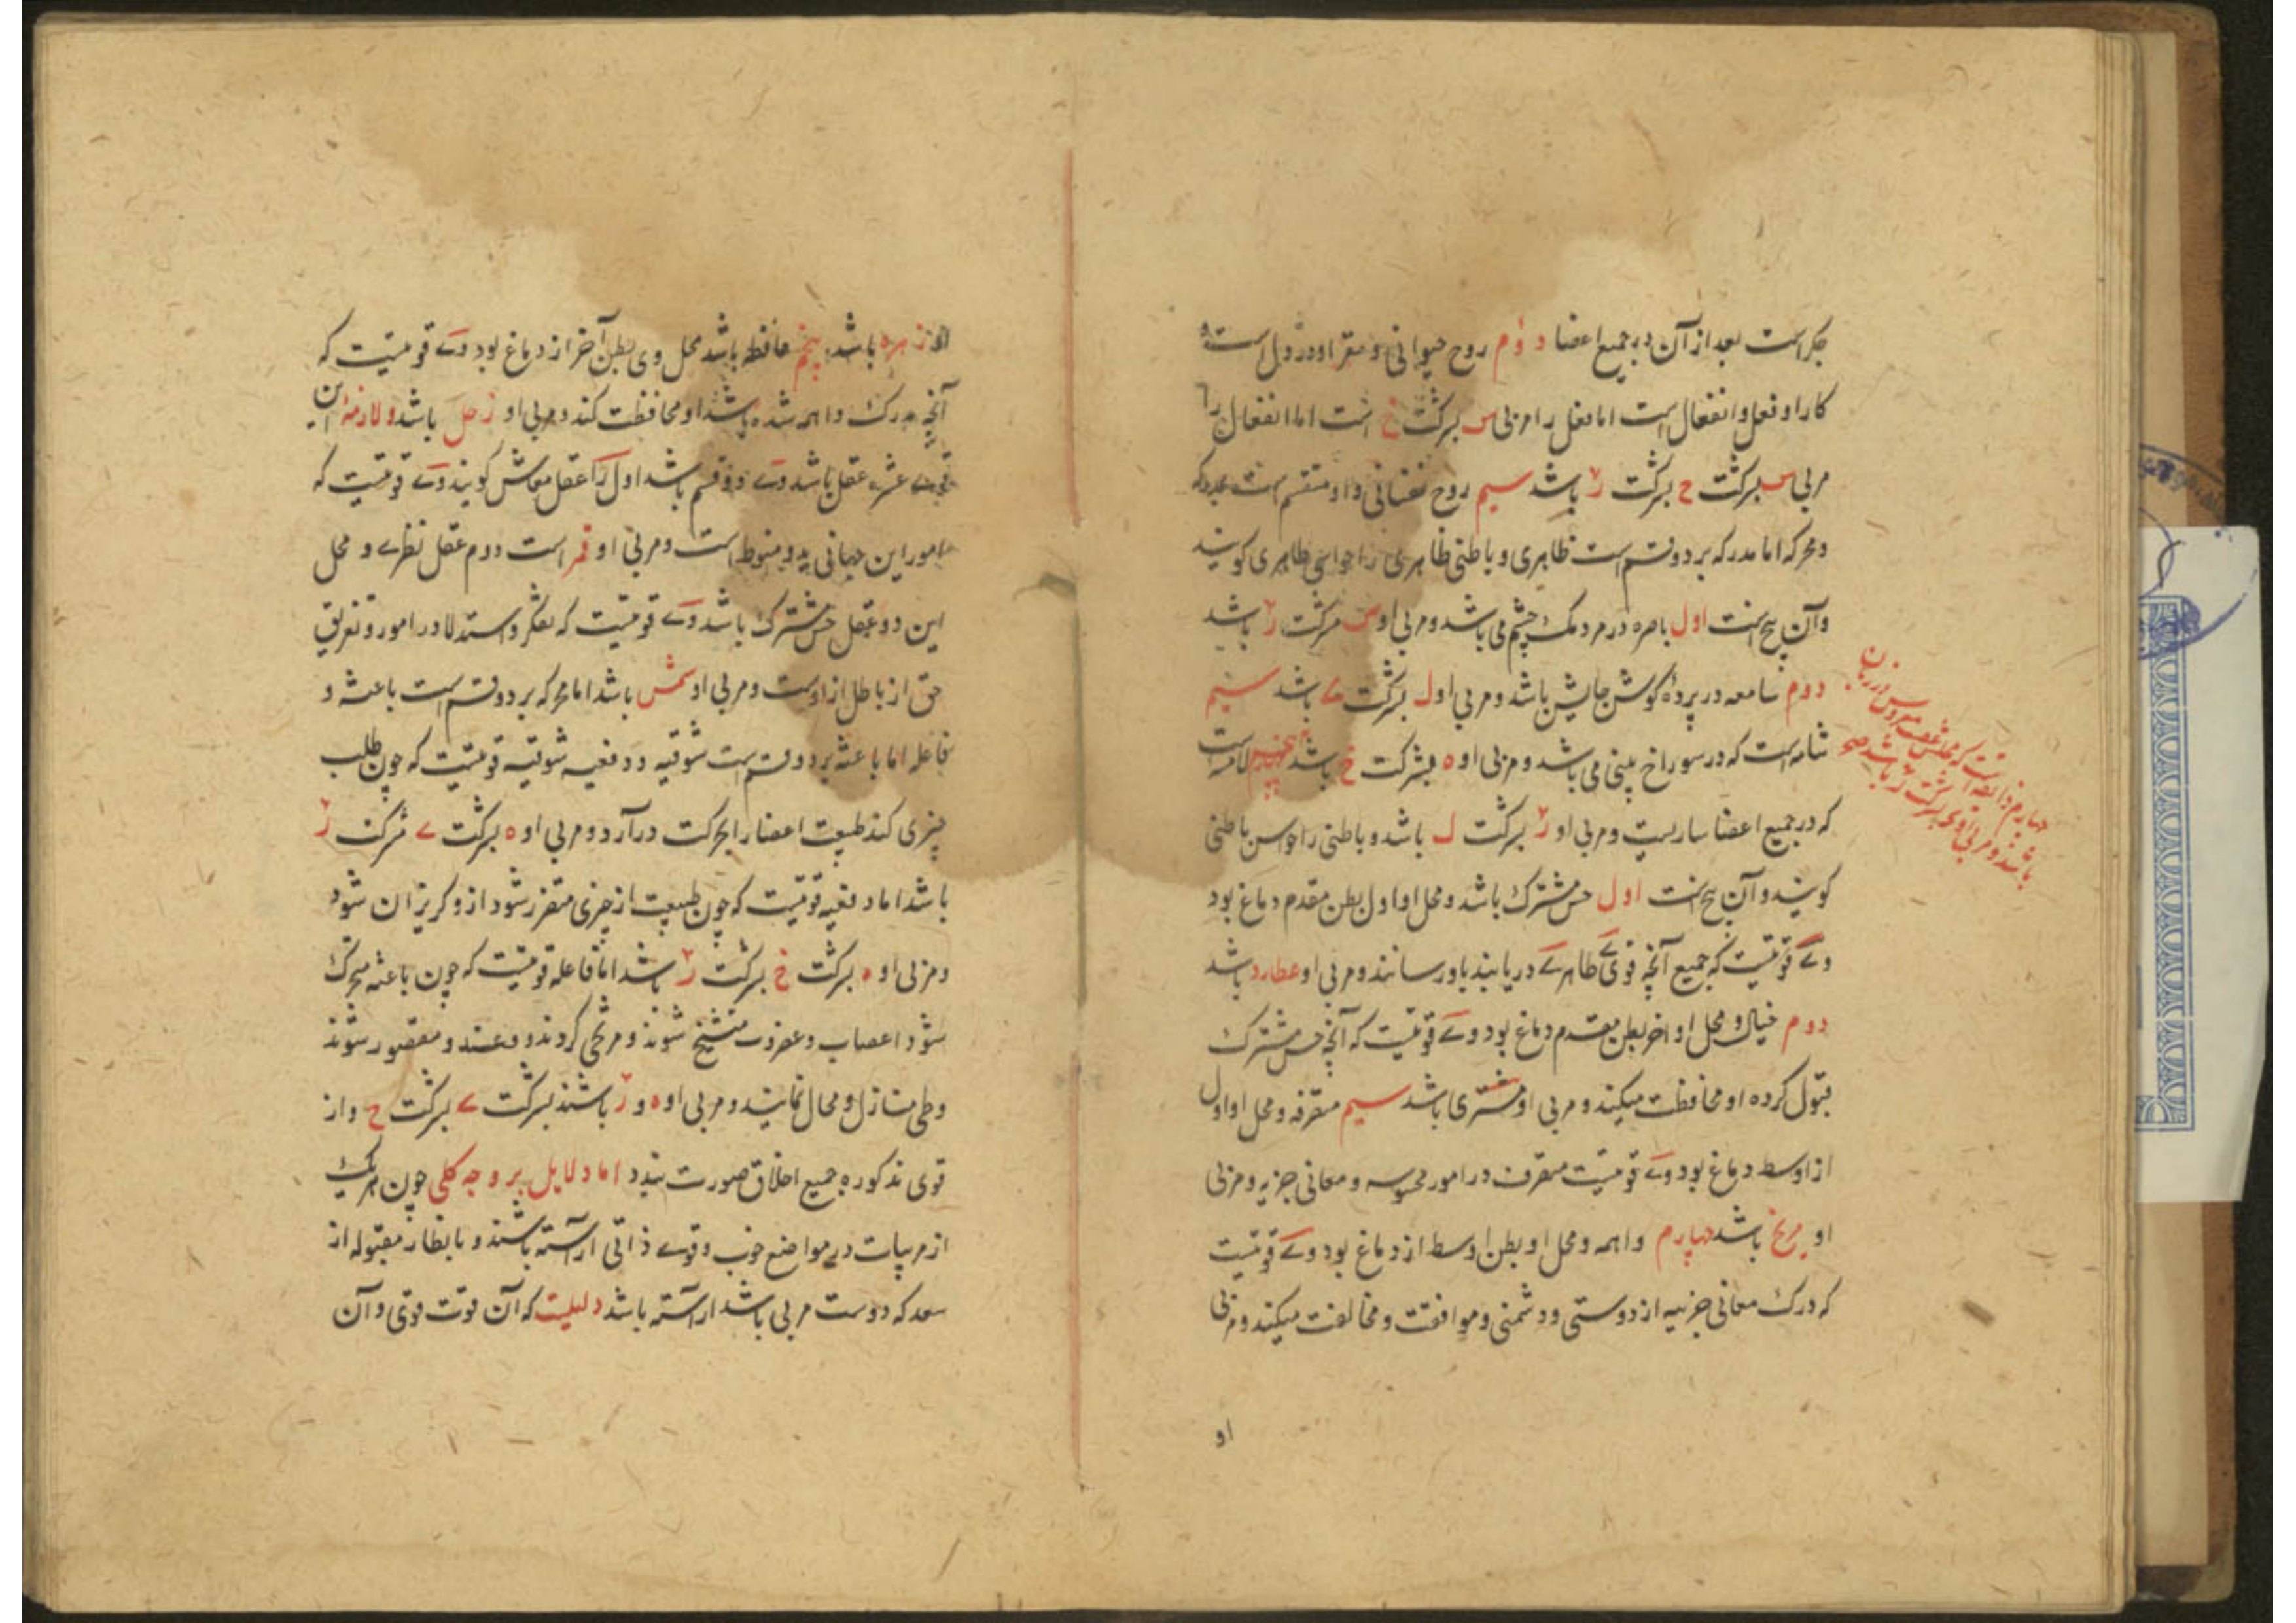 جگر است بعد از آن در جمیع اعضا دوم روح حیوانی و مقر او در دل است و
کار او فعل و انفعال است اما فعل را مربی س بشرکت خ است اما انفعال را
مربی س بشرکت ح بشرکت ر باشد سیم روح نفسانی و او منقسم است بمدرکه
و محرکه اما مدرکه بر دو قسم است ظاهری و باطنی ظاهری را حواس ظاهری گویند
و آن پنج است اول باصره در مردمک چشم می باشد و مربی او س بشرکت ر باشد
دوم سامعه در پرده گوش جایش باشد و مربی او ل بشرکت ے باشد سیم
شامه است که در سوراخ بینی می باشد و مربی او ه بشرکت خ باشد پنجم لامسه است
که در جمیع اعضا ساریست و مربی او ر بشرکت ل باشد و باطنی را حواس باطنی
گویند و آن پنج است اول حس مشترک باشد و محل او اول بطن مقدم دماغ بود
وے قوتیست که جمیع آنچه قوی ظاهرے دریابند باو رسانند و مربی او عطارد باشد
دوم خیال و محل او آخر بطن مقدم دماغ بود وے قوتیست که آنچه حس مشترک
قبول کرده او محافظت میکند و مربی او مشتری باشد سیم متصرفه و محل او اول
از اوسط دماغ بود وے قوتیست متصرف در امور محسوسه و معانی جزیه و مربی
او مریخ باشد چهارم واهمه و محل او بطن اوسط از دماغ بود وے قوتیست
که درک معانی جزییه از دوستی و دشمنی و موافقت و مخالفت میکند و مربی
او
چهارم ذائقه است که محلش عصب مفروش در زبان
باشد و مربی او ی بشرکت ر باشد صح
او زهره باشد پنجم حافظه باشد محل وی بطن آخر از دماغ بود وے قوتیست که
آنچه مدرک واهمه شده باشد او محافظت کند و مربی او زحل باشد و لازمهٔ این
قواے عشره عقل باشد وے دو قسم باشد اول را عقل معاش گویند وے قوتیست که
امور این جهانی بدو منوط است و مربی او قمر است دوم عقل نظرے و محل
این دو عقل حس مشترک باشد وے قوتیست که تفکر و استدلا در امور و تفریق
حق از باطل از اوست و مربی او شمس باشد اما محرکه بر دو قسم است باعثه و
فاعله اما باعثه بر دو قسم است شوقیه و دفعیه شوقیه قوتیست که چون طلب
چیزی کند طبیعت اعضا را بحرکت درآرد و مربی او ه بشرکت ے بشرکت ر
باشد اما دفعیه قوتیست که چون طبیعت از چیزی متنفر شود از و گریزان شود
و مربی او ه بشرکت خ بشرکت ر باشد اما فاعله قوتیست که چون باعثه محرک
شود اعصاب و غضروف متشنج شوند و مرخی گردند و
وطی منازل و محال نمایند و مربی او ه و ر باشند بشرکت ے بشرکت ح و از
قوی مذکوره جمیع اخلاق صورت بندد اما دلایل بر وجه کلی چون هر یک
از مربیات در مواضع خوب و قوے ذاتی آراسته باشند و بانظار مقبوله از
سعد که دوست مربی باشد آراسته باشد دلیلیست که آن قوت قوی و آن